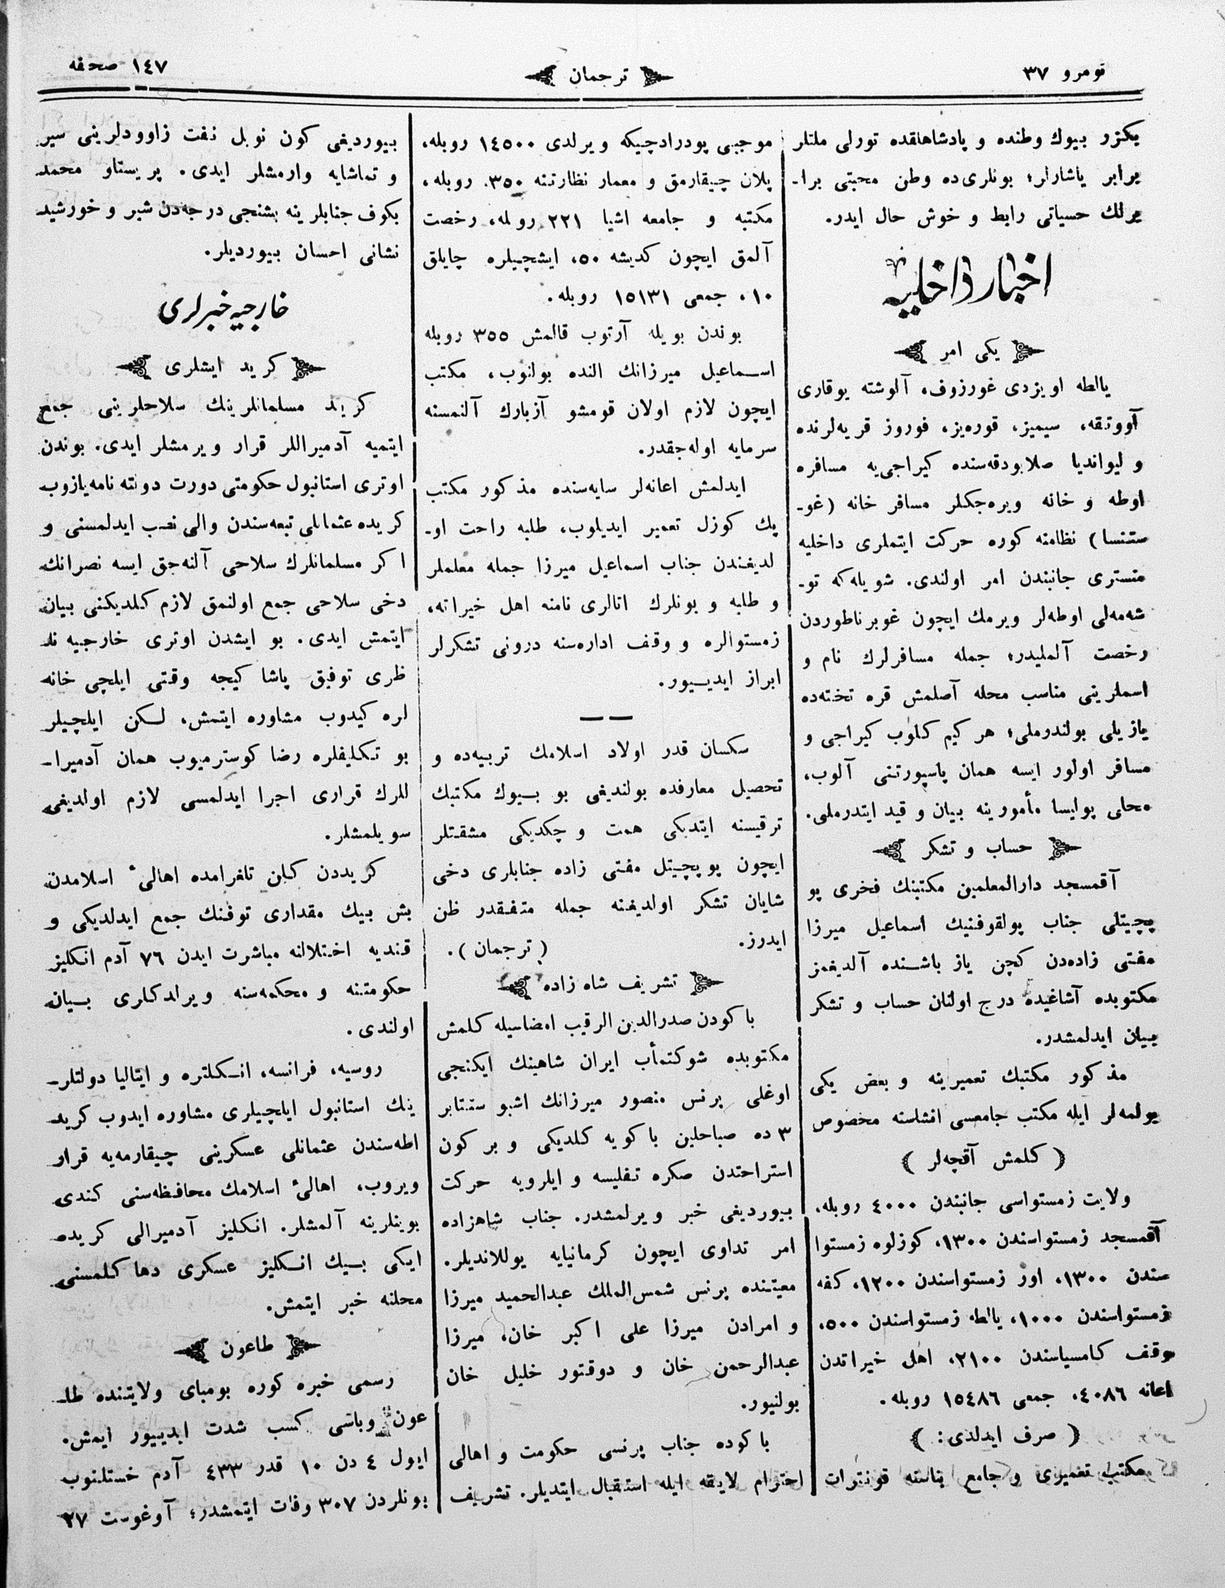 نومرو ٣٧
ترجمان
١٤٧ صحفه
يكزر بيوك وطنده و پادشاهلقده تورلى ملتلر
برابر ياشارلر؛ بونلرى‌ده وطن محبتى برا-
برلك حسياتى رابط و خوش حال ايدر.
اخبار داخليه
يكى امر
يالطه اويزدى غورزوف، آلوشته يوقارى
آووتقه، سيميز، قوره‌يز، فوروز قريه‌لرنده
و ليوانديا صلابودقه‌سنده كيراجى‌يه مسافره
اوطه و خانه ويره‌جكلر مسافر خانه (غو-
ستنسا) نظامنه كوره حركت ايتملرى داخليه
منسترى جانبندن امر اولندى. شويله‌كه تو-
شه‌مه‌لى اوطه‌لر ويرمك ايچون غوبرناطوردن
رخصت آلمليدر؛ جمله مسافرلرك نام و
اسملرينى مناسب محله آصلمش قره تخته‌ده
يازيلى بولندرملى؛ هر كيم كلوب كيراجى و
مسافر اولور ايسه همان پاسپورتنى آلوب،
محلى پوليسا مأمورينه بيان و قيد ايتدرملى.
حساب و تشكر
آقمسجد دارالمعلمين مكتبنك فخرى پو
پچيتلى جناب پولقوفنيك اسماعيل ميرزا
مفتى زاده‌دن كچن ياز باشنده آلديغمز
مكتوبده آشاغيده درج اولنان حساب و تشكر
بيان ايدلمشدر.
مذكور مكتبك تعميرينه و بعض يكى
بولمه‌لر ايله مكتب جامعسى انشاسنه مخصوص
(كلمش آقچه‌لر)
ولايت زمستواسى جانبندن ٤٠٠٠ روبله،
آقمسجد زمستواسندن ١٣٠٠، كوزلوه زمستوا
سندن ١٣٠٠، اور زمستواسندن ١٢٠٠، كفه
زمستواسندن ١٠٠٠، يالطه زمستواسندن ٥٠٠،
وقف كامسياسندن ٢١٠٠، اهل خيراتدن
اعانه ٤٠٨٦، جمعى ١٥٤٨٦ روبله.
(صرف ايدلدى:)
مكتب تعميرى و جامع بناسنه قونترات
موجبى پودرادچيكه ويرلدى ١٤٥٠٠ روبله،
پلان چيقارمق و معمار نظارتنه ٣٥٠ روبله،
مكتبه و جامعه اشيا ٢٢١ روبله، رخصت
آلمق ايچون كديشه ٥٠، ايشچيلره چايلق
١٠، جمعى ١٥١٣١ روبله.
بوندن بويله آرتوب قالمش ٣٥٥ روبله
اسماعيل ميرزانك النده بولنوب، مكتب
ايچون لازم اولان قومشو آزبارك آلنمسنه
سرمايه اوله‌جقدر.
ايدلمش اعانه‌لر سايه‌سنده مذكور مكتب
پك كوزل تعمير ايديلوب، طلبه راحت او-
لديغندن جناب اسماعيل ميرزا جمله معلملر
و طلبه و بونلرك انالرى نامنه اهل خيراته،
زمستوالره و وقف اداره‌سنه درونى تشكرلر
ابراز ايديور.
سكسان قدر اولاد اسلامك تربيه‌ده و
تحصيل معارفده بولنديغى بو بيوك مكتبك
ترقيسنه ايتديكى همت و چكديكى مشقتلر
ايچون پوپچيتل مفتى زاده جنابلرى دخى
شايان تشكر اولديغنه جمله متفقدر ظن
ايدرز. (ترجمان).
تشريف شاه زاده
باكودن صدرالدين الرقيب امضاسيله كلمش
مكتوبده شوكتمأب ايران شاهينك ايكنجى
اوغلى پرنس منصور ميرزانك اشبو سنتابر
٣ ده صباحلين باكويه كلديكى و بر كون
استراحتدن صكره تفليسه و ايلرويه حركت
بيورديغى خبر ويرلمشدر. جناب شاهزاده
امر تداوى ايچون كرمانيايه يوللانديلر.
معيتنده پرنس شمس‌الملك عبدالحميد ميرزا
و امرادن ميرزا على اكبر خان، ميرزا
عبدالرحمن خان و دوقتور خليل خان
بولنيور.
باكوده جناب پرنسى حكومت و اهالى
احترام لايقه ايله استقبال ايتديلر. تشريف
بيورديغى كون نوبل نفت زاوودلرينى سير
و تماشايه وارمشلر ايدى. پريستاو محمد
بكوف جنابلرينه بشنجى درجه‌دن شير و خورشيد
نشانى احسان بيورديلر.
خارجيه خبرلرى
كريد ايشلرى
كريد مسلمانلرينك سلاحلرينى جمع
ايتميه آدميراللر قرار ويرمشلر ايدى. بوندن
اوترى استانبول حكومتى دورت دولته نامه‌يازوب
كريده عثمانلى تبعه‌سندن والى نصب ايدلمسنى و
اكر مسلمانلرك سلاحى آلنه‌جق ايسه نصرانك
دخى سلاحى جمع اولنمق لازم كلديكنى بيان
ايتمش ايدى. بو ايشدن اوترى خارجيه نا-
ظرى توفيق پاشا كيجه وقتى ايلچى خانه
لره كيدوب مشاوره ايتمش، لكن ايلچيلر
بو تكليفلره رضا كوسترميوب همان آدميرا-
للرك قرارى اجرا ايدلمسى لازم اولديغى
سويلمشلر.
كريددن كلن تلغرامده اهالى‌ٔ اسلامدن
بش بيك مقدارى توفنك جمع ايدلديكى و
قنديه اختلالنه مباشرت ايدن ٧٦ آدم انكليز
حكومتنه و محكمه‌سنه ويرلدكلرى بيان
اولندى.
روسيه، فرانسه، انكلتره و ايتاليا دولتلر-
ينك استانبول ايلچيلرى مشاوره ايدوب كريد
اطه‌سندن عثمانلى عسكرينى چيقارمه‌يه قرار
ويروب، اهالئ اسلامك محافظه‌سنى كندى
بوينلرينه آلمشلر. انكليز آدميرالى كريده
ايكى بيك انكليز عسكرى دها كلمسنى
محلنه خبر ايتمش.
طاعون
رسمى خبره كوره بومباى ولايتنده طا-
عون وباسى كسب شدت ايدييور ايمش.
ايول ٤ دن ١٠ قدر ٤٣٣ آدم خستلنوب
بونلردن ٣٠٧ وفات ايتمشدر؛ آوغوست ٢٧